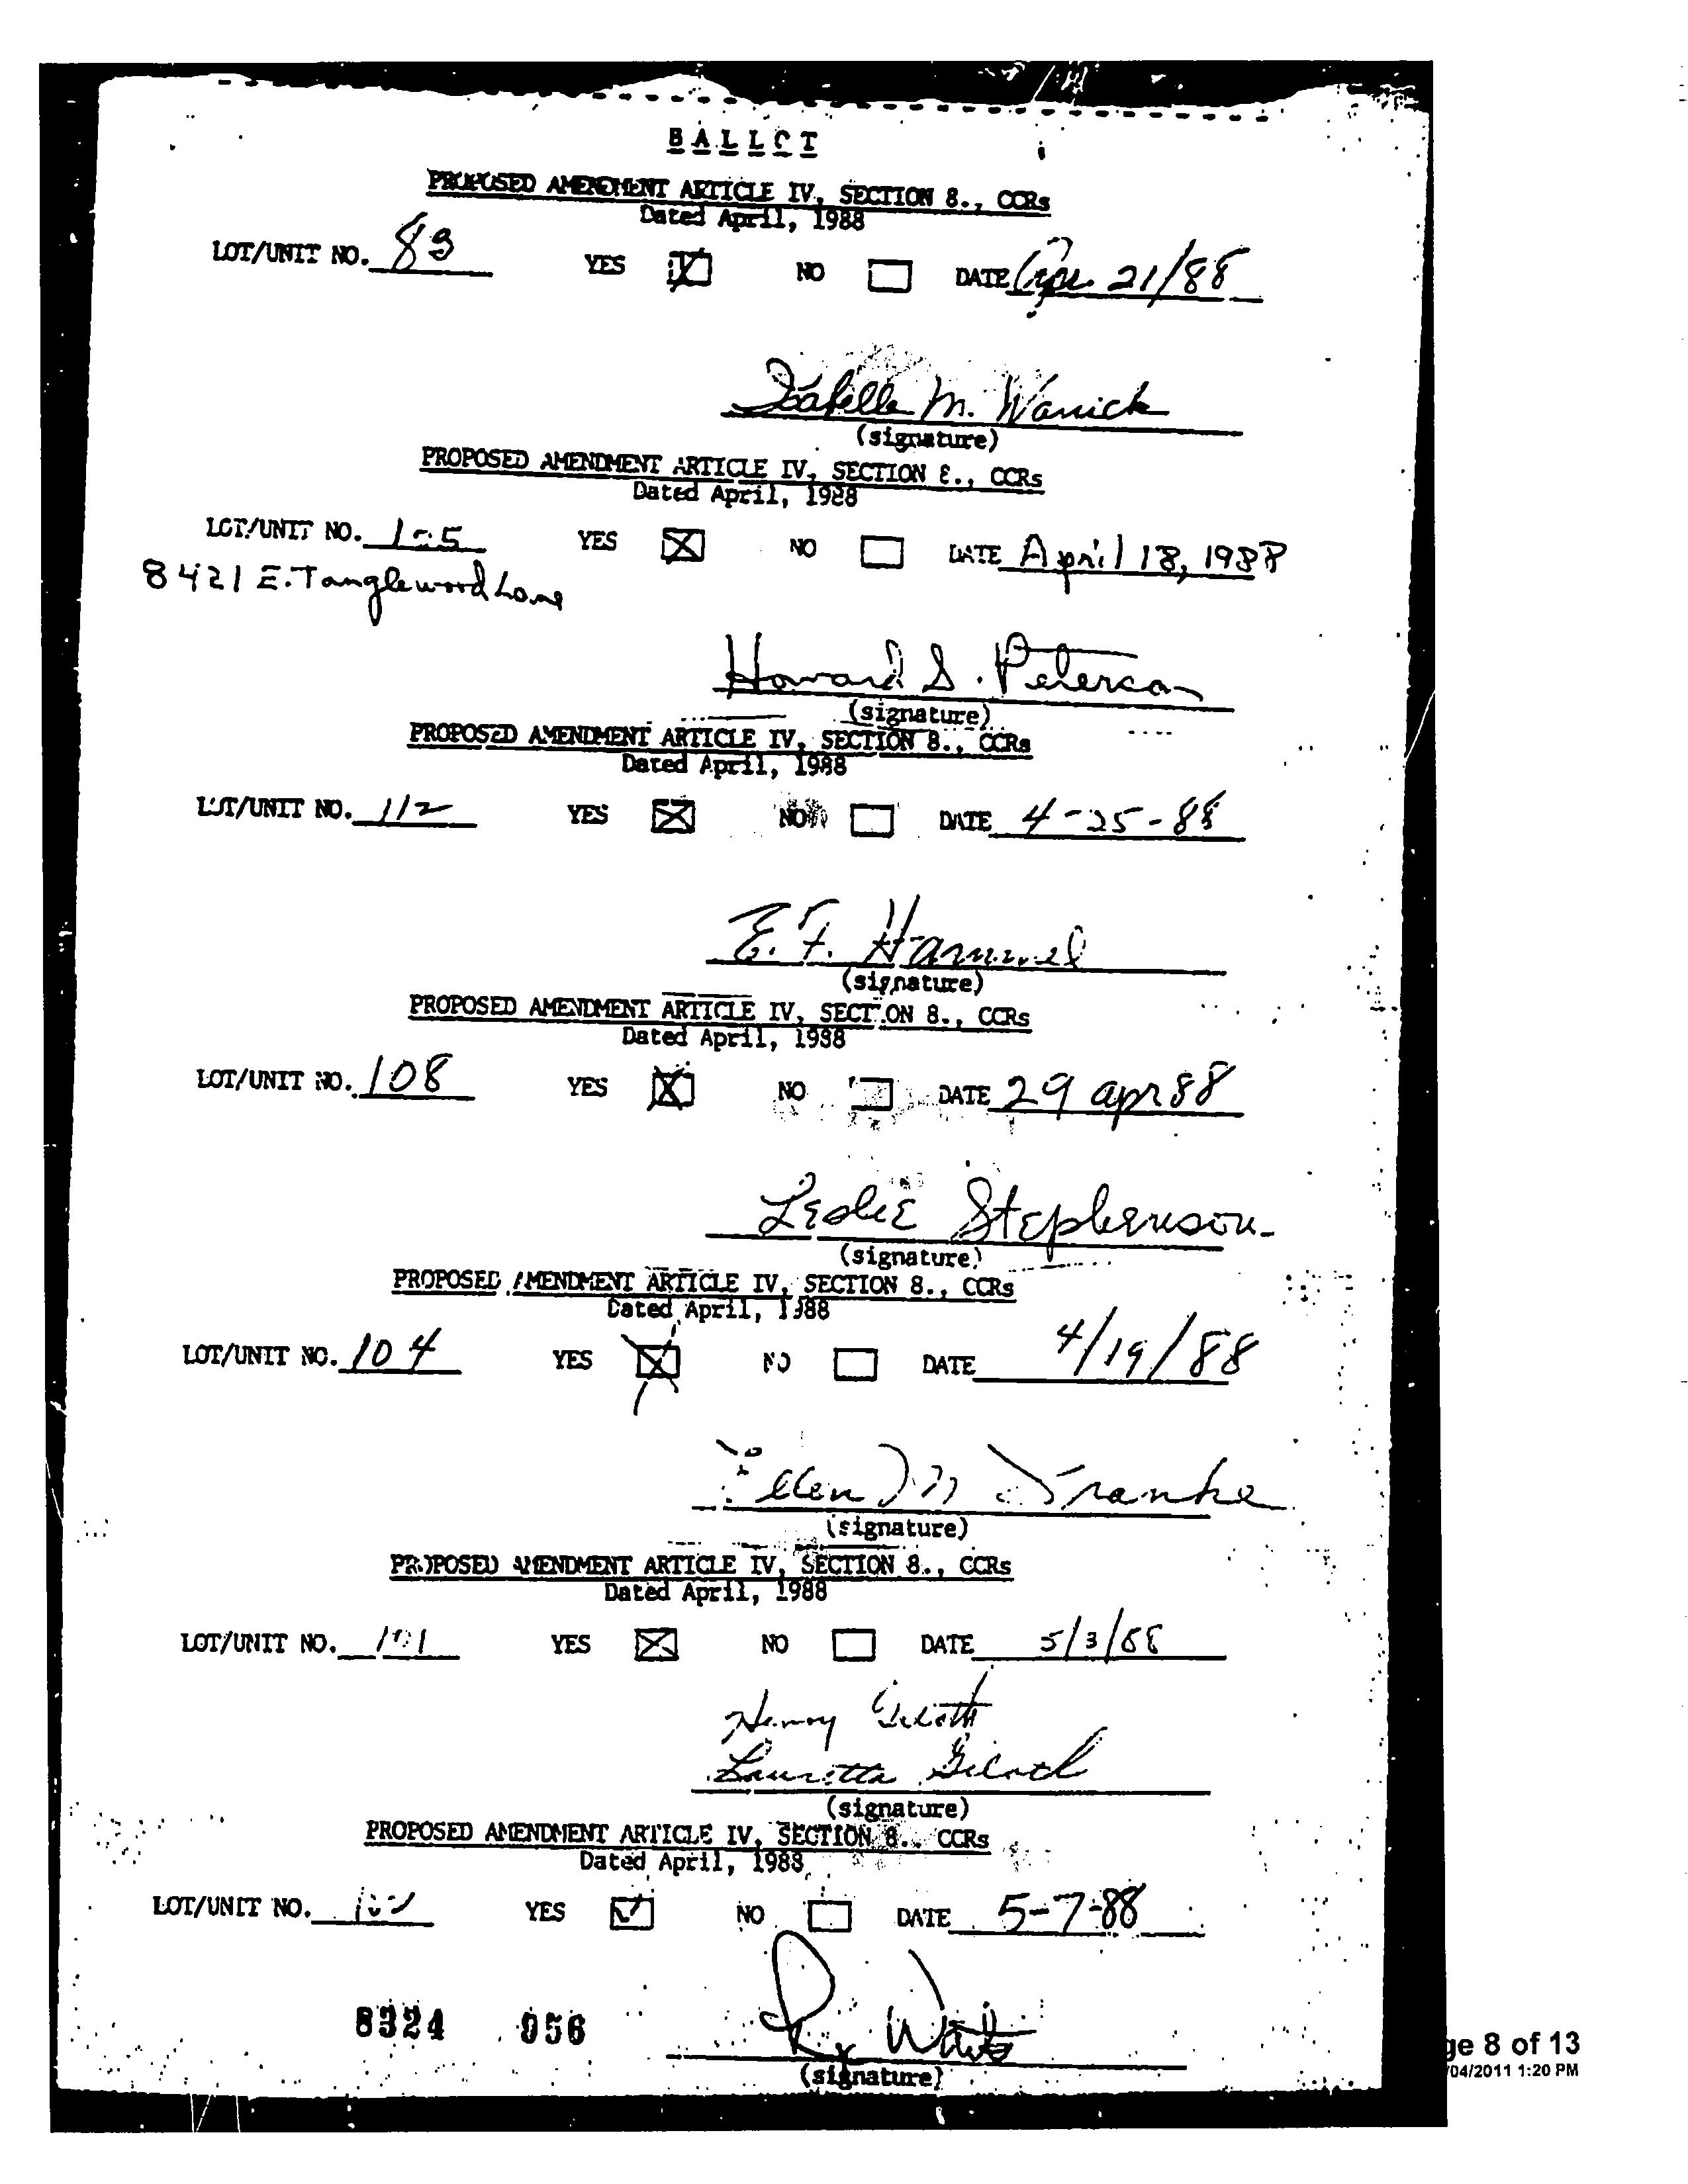 BALLOT
PROPOSED AMENDMENT ARTICLE IV, SECTION 8., CCRs
Dated April, 1988
LOT/UNIT NO. 83 YES NO DATE Apr. 21/88
Isabelle M. Warrick
(signature)
PROPOSED AMENDMENT ARTICLE IV, SECTION 8., CCRs
Dated April, 1988
LOT/UNIT NO. 105 YES NO DATE April 18, 1988
8421 E. Tanglewood Lane
Howard S. Peterson
(signature)
PROPOSED AMENDMENT ARTICLE IV, SECTION 8., CCRs
Dated April, 1988
LOT/UNIT NO. 112 YES NO DATE 4-25-88
E. F. Hammel
(signature)
PROPOSED AMENDMENT ARTICLE IV, SECTION 8., CCRs
Dated April, 1988
LOT/UNIT NO. 108 YES NO DATE 29 apr 88
Leslie Stephenson
(signature)
PROPOSED AMENDMENT ARTICLE IV, SECTION 8., CCRs
Dated April, 1988
LOT/UNIT NO. 104 YES NO DATE 4/19/88
Ellen M Franke
(signature)
PROPOSED AMENDMENT ARTICLE IV, SECTION 8., CCRs
Dated April, 1988
LOT/UNIT NO. 101 YES NO DATE 5/3/88
Henry
Lauretta
(signature)
PROPOSED AMENDMENT ARTICLE IV, SECTION 8., CCRs
Dated April, 1988
LOT/UNIT NO. YES NO DATE 5-7-88
8324 956
(signature)
ge 8 of 13
/04/2011 1:20 PM